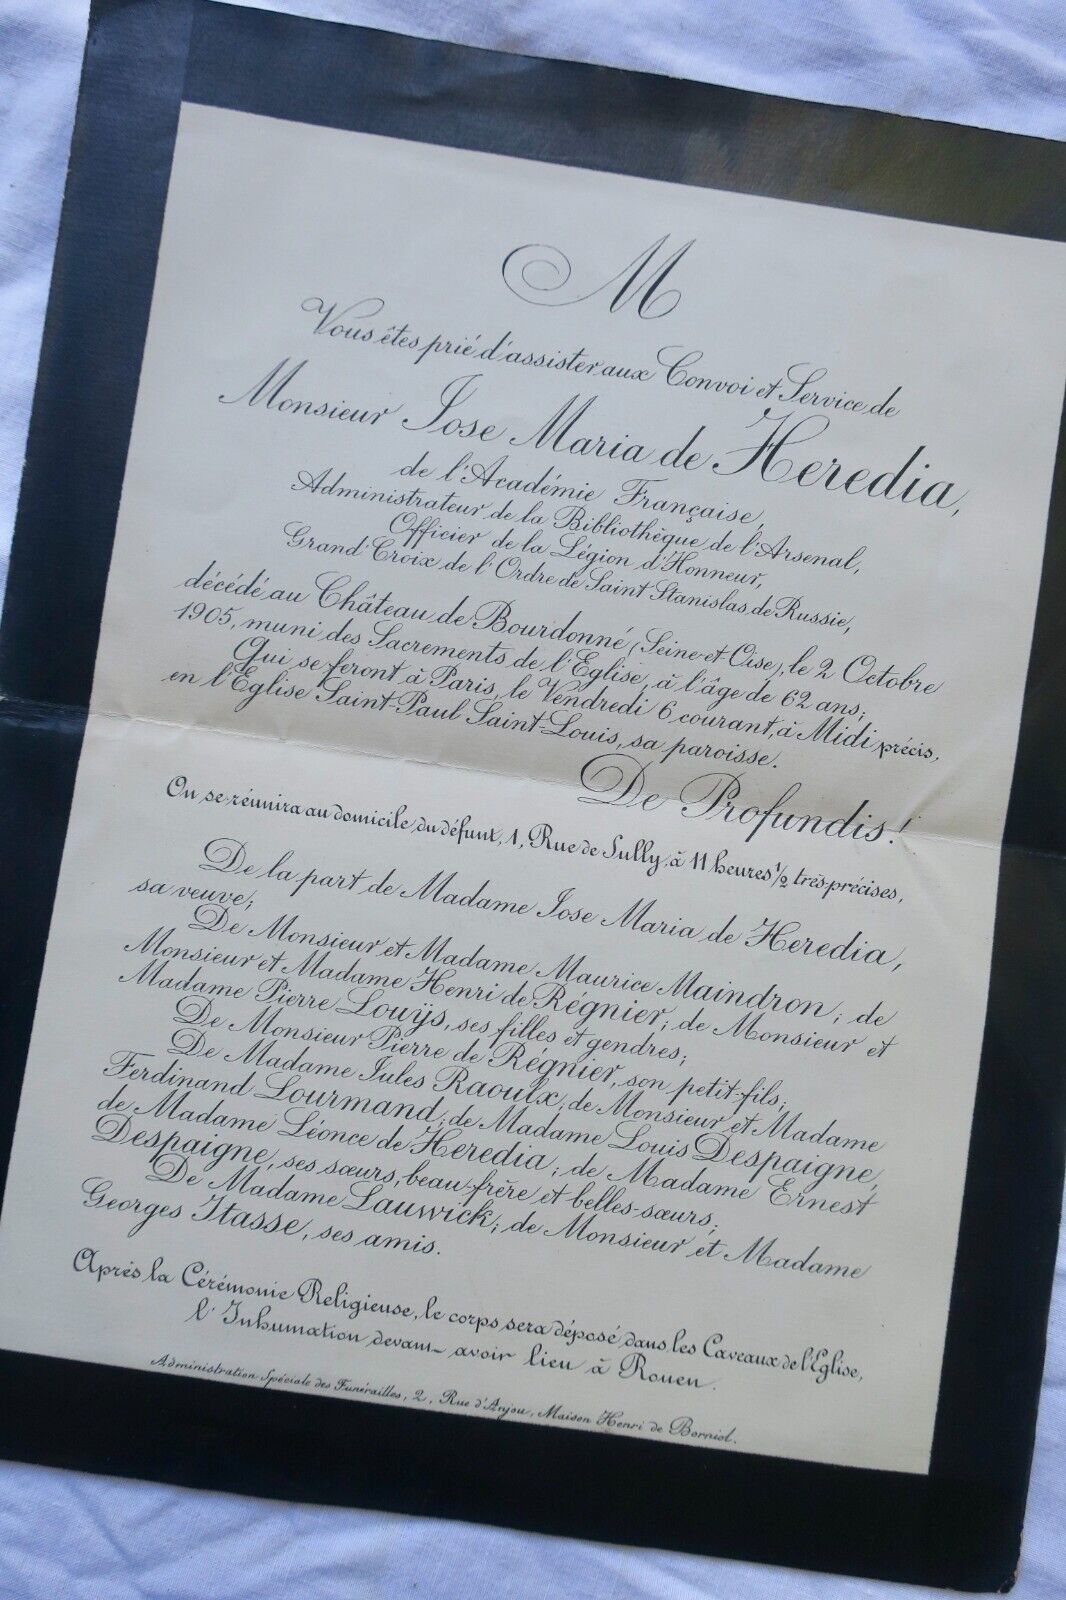 M
Vous êtes prié d'assister aux Convoi et Service de
Monsieur Jose Maria de Heredia,
de l'Académie Française,
Administrateur de la Bibliothèque de l'Arsenal,
Officier de la Légion d'Honneur,
Grand'Croix de l'Ordre de Saint Stanislas de Russie,
décédé au Château de Bourdonné (Seine-et-Oise), le 2 Octobre
1905, muni des Sacrements de l'Eglise, à l'âge de 62 ans;
Qui se feront à Paris, le Vendredi 6 courant, à Midi précis,
en l'Eglise Saint-Paul Saint-Louis, sa paroisse.
De Profundis!
On se réunira au domicile du défunt, 1, Rue de Sully, à 11 heures 1/2 très-précises.
De la part de Madame Jose Maria de Heredia,
sa veuve;
De Monsieur et Madame Maurice Maindron; de
Monsieur et Madame Henri de Régnier; de Monsieur et
Madame Pierre Louÿs, ses filles et gendres;
De Monsieur Pierre de Régnier, son petit-fils;
De Madame Jules Raoulx; de Monsieur et Madame
Ferdinand Lourmand; de Madame Louis Despaigne,
de Madame Léonce de Heredia; de Madame Ernest
Despaigne, ses sœurs, beau-frère et belles-sœurs;
De Madame Lauwick; de Monsieur et Madame
Georges Itasse, ses amis.
Après la Cérémonie Religieuse, le corps sera déposé dans les Caveaux de l'Eglise,
l'Inhumation devant avoir lieu à Rouen.
Administration Spéciale des Funérailles, 2, Rue d'Anjou, Maison Henri de Borniol.